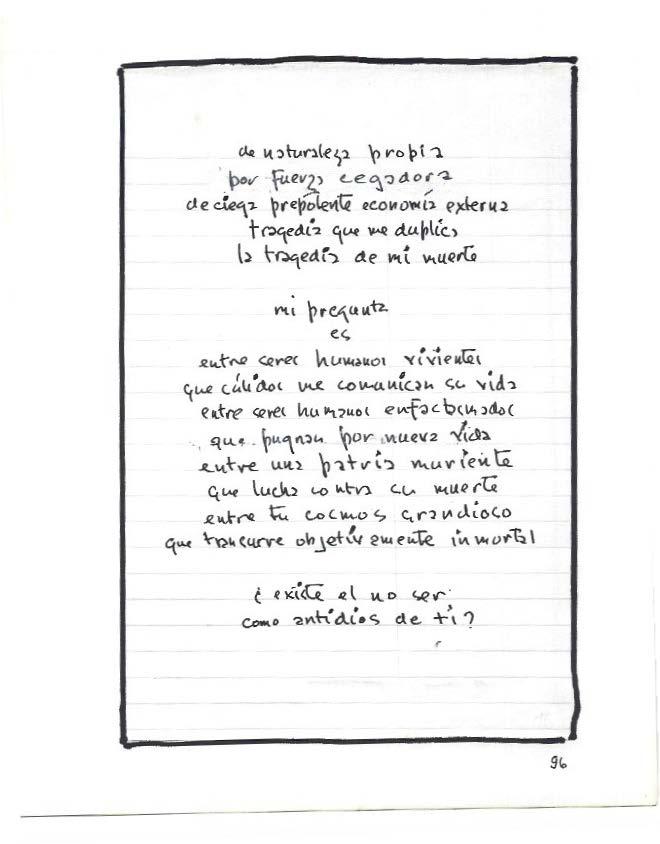 de naturaleza propia
por fuerza cegadora
de ciega prepotente economía externa
tragedia que me duplica
la tragedia de mi muerte
mi pregunta
es
entre seres humanos vivientes
que cálidos me comunican su vida
entre seres humanos
que pugnan por nueva vida
entre una patria muriente
que lucha contra su muerte
entre tu cosmos grandioso
que transcurre objetivamente inmortal
¿existe el no ser
como antidios de ti?
96